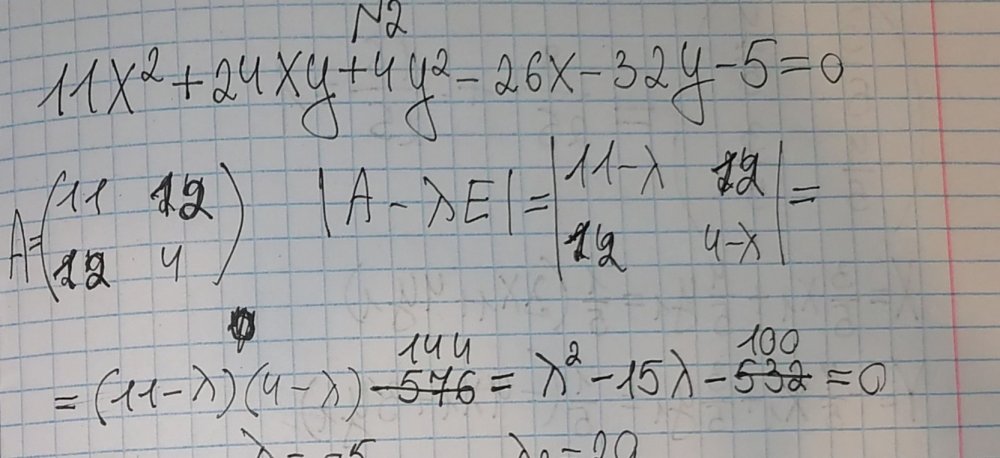 N2
11x² + 24xy + 4y² - 26x - 32y - 5 = 0
A = (11 12
12 4) |A - λE| = |11-λ 12
12 4-λ| =
144 100
= (11-λ)(4-λ) - 576 = λ² - 15λ - 532 = 0